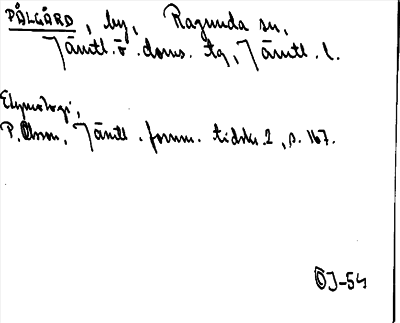 PÅLGÅRD, by, Ragunda sn,
Jämtl. ö. doms. tg, Jämtl. l.
Etymologi,
P. Olsson, Jämtl. fornm. tidskr. 2, s. 167.
ÖJ-54